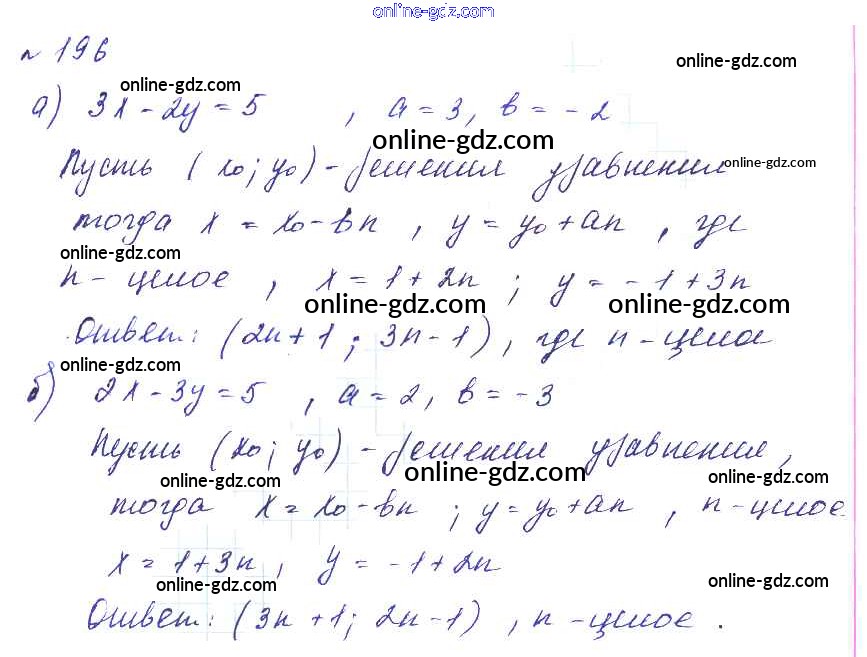 online-gdz.com
n 196
online-gdz.com
online-gdz.com
а) 3x - 2y = 5 , a = 3, b = - 2
online-gdz.com
Пусть ( x₀; y₀) - решения уравнения
online-gdz.com
тогда x = x₀ - bn , y = y₀ + an , где
online-gdz.com
n - целое , x = 1 + 2n ; y = - 1 + 3n
online-gdz.com
online-gdz.com
Ответ: (2n + 1 ; 3n - 1) , где n - целое
online-gdz.com
б) 2x - 3y = 5 , a = 2, b = - 3
Пусть (x₀; y₀) - решения уравнения,
online-gdz.com
online-gdz.com
online-gdz.com
тогда x = x₀ - bn ; y = y₀ + an , n - целое
x = 1 + 3n , y = - 1 + 2n
online-gdz.com
online-gdz.com
Ответ: (3n + 1; 2n - 1) , n - целое .